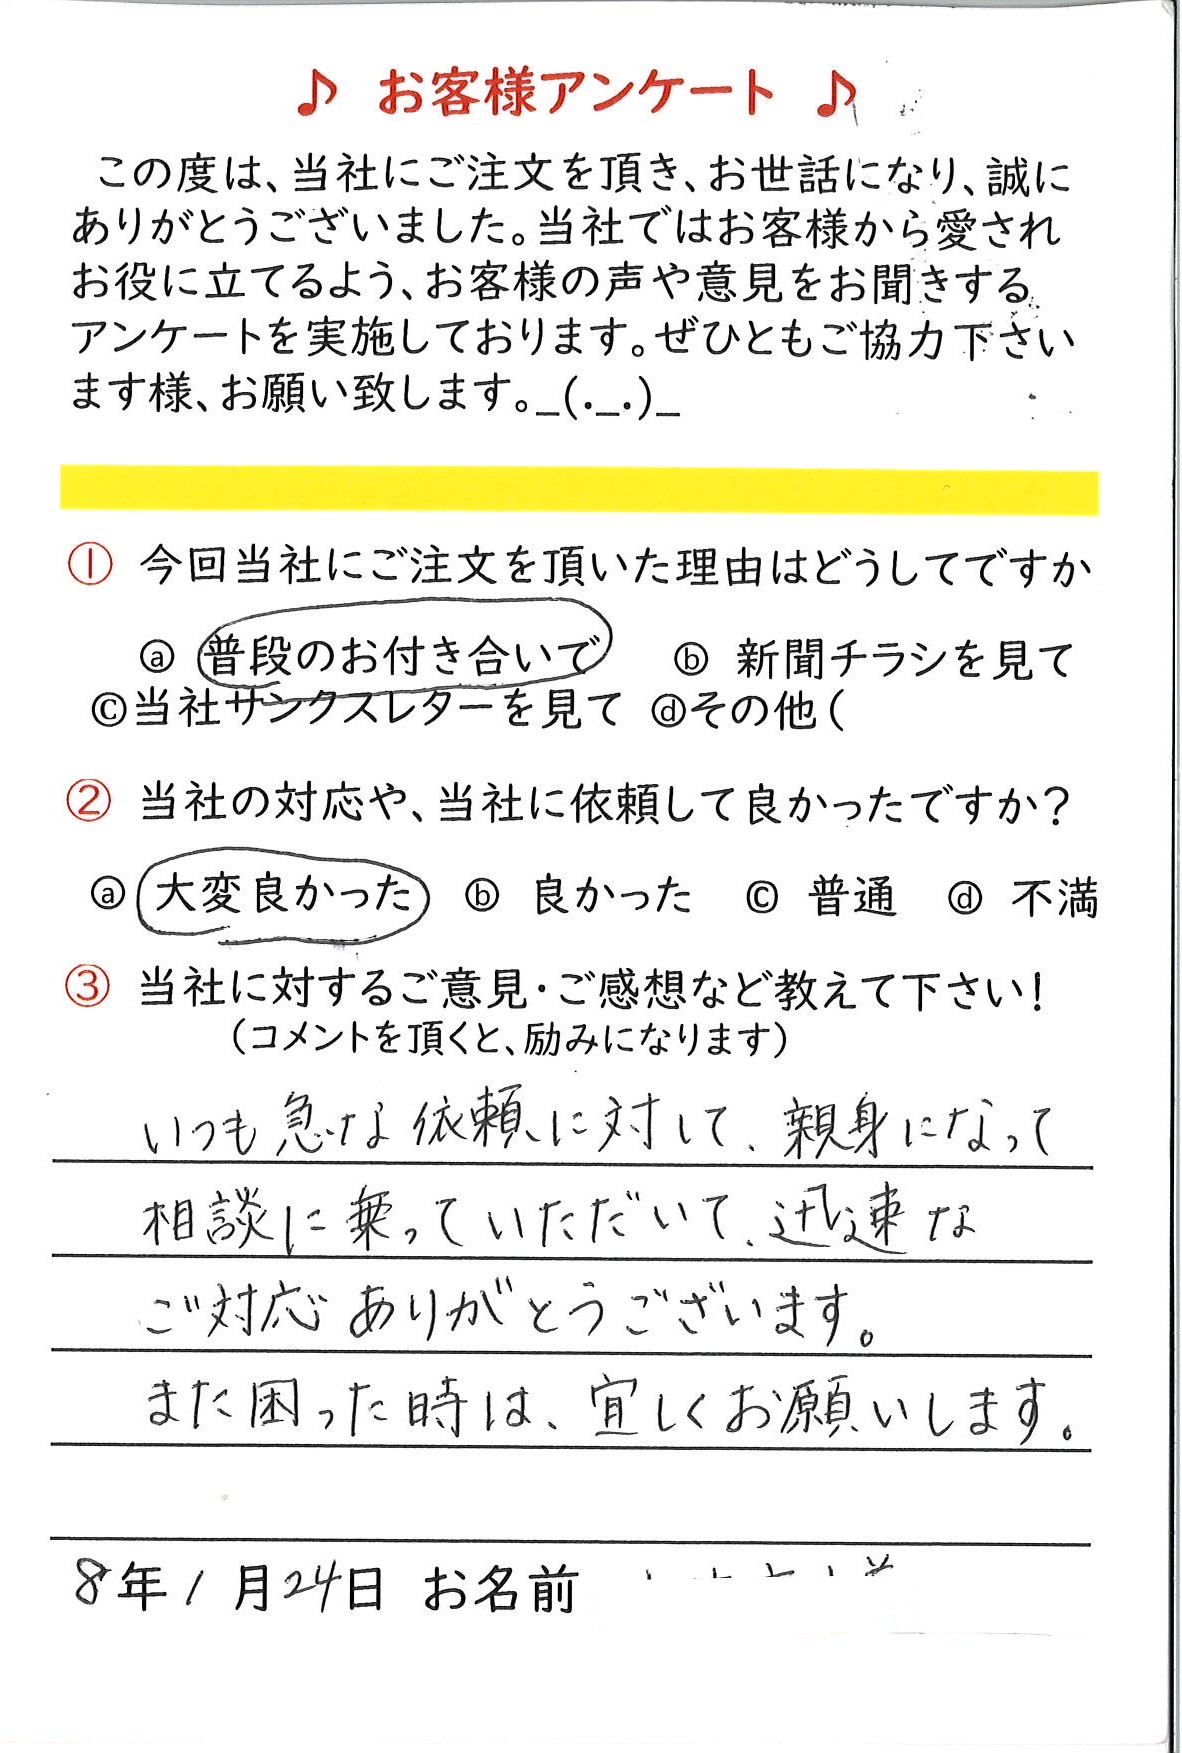 ♪ お客様アンケート ♪
この度は、当社にご注文を頂き、お世話になり、誠に
ありがとうございました。当社ではお客様から愛され
お役に立てるよう、お客様の声や意見をお聞きする
アンケートを実施しております。ぜひともご協力下さい
ます様、お願い致します。_(._.)_
① 今回当社にご注文を頂いた理由はどうしてですか
ⓐ 普段のお付き合いで ⓑ 新聞チラシを見て
ⓒ当社サンクスレターを見て ⓓその他(
② 当社の対応や、当社に依頼して良かったですか?
ⓐ 大変良かった ⓑ 良かった ⓒ 普通 ⓓ 不満
③ 当社に対するご意見・ご感想など教えて下さい!
(コメントを頂くと、励みになります)
いつも急な依頼に対して、親身になって
相談に乗っていただいて、迅速な
ご対応ありがとうございます。
また困った時は、宜しくお願いします。
8年1月24日 お名前